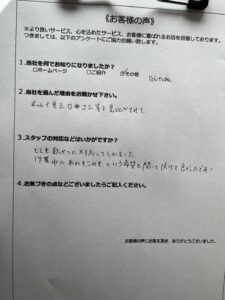 《お客様の声》
※より良いサービス、心を込めたサービス、お客様に喜ばれるお店を目指しております。
つきましては、以下のアンケートにご協力お願い致します。
1.当社を何でお知りになりましたか？
□ホームページ □ご紹介 ☑その他 Youtube
2.当社を選んだ理由をお聞かせ下さい。
3.スタッフの対応などはいかがですか？
とても親せつに対応してくれました
作業中にあれもこれもという希望も聞いて頂けて
4.お気づきの点などございましたらご記入ください。
お客様の声にお答え頂き、ありがとうございました。